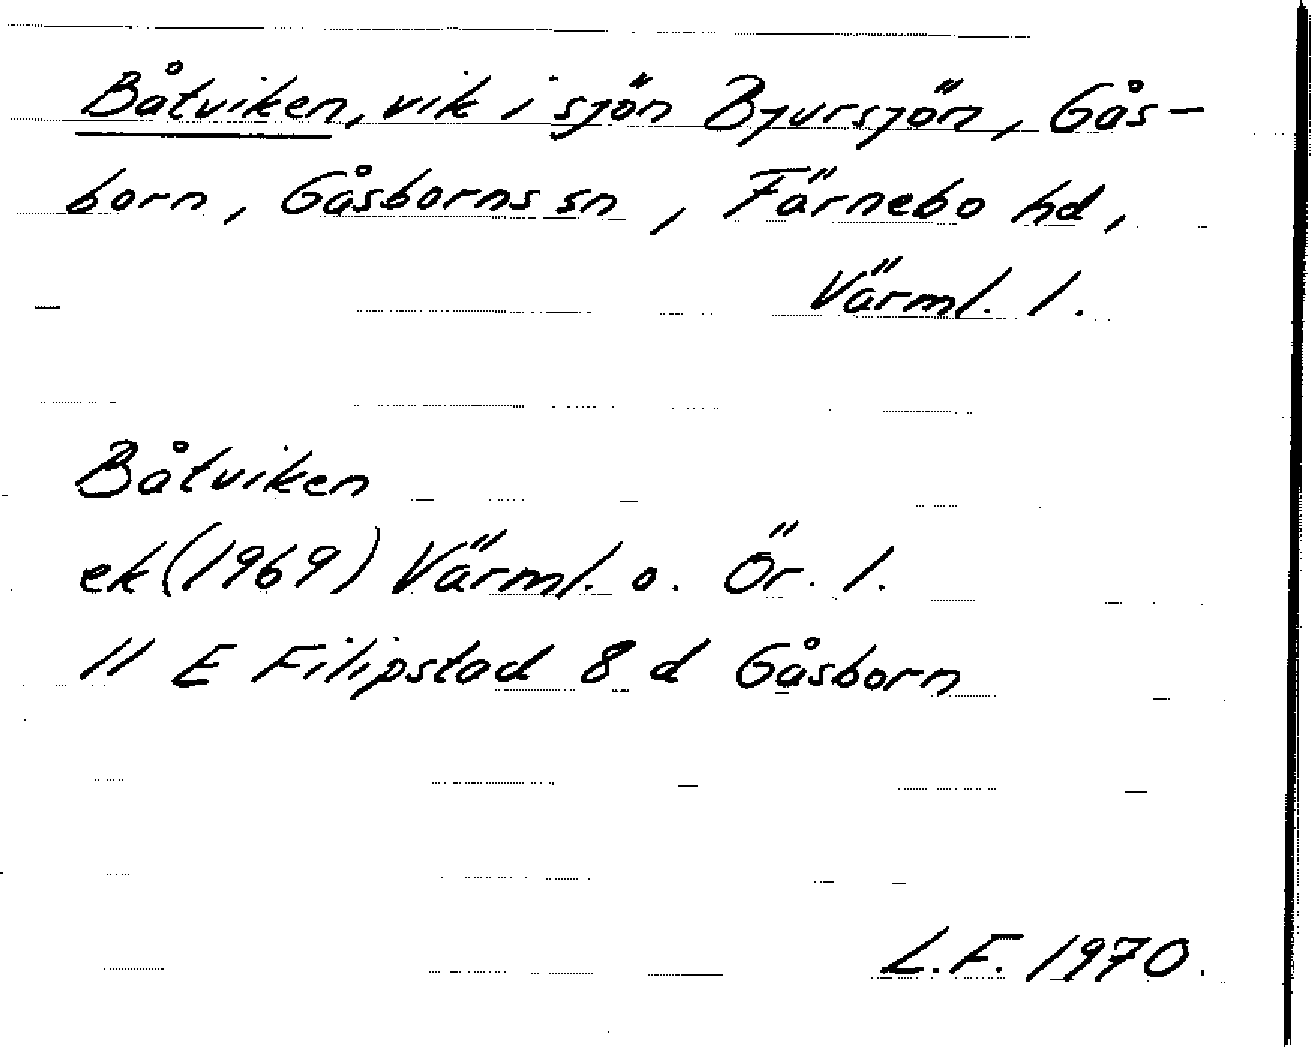 Båtviken, vik i sjön Bjursjön, Gås-
born, Gåsborns sn, Färnebo hd,
Värml. l.
Båtviken
ek (1969) Värml. o. Ör. l.
11 E Filipstad 8 d Gåsborn
L.F. 1970.